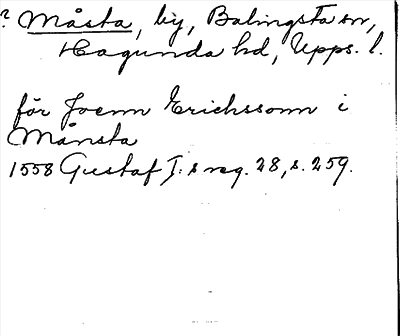 ? Måsta, by, Balingsta sn,
Hagunda hd, Upps. l.
för Joenn Erichssonn i
Månsta
1558 Gustaf I:s reg. 28, s. 259.